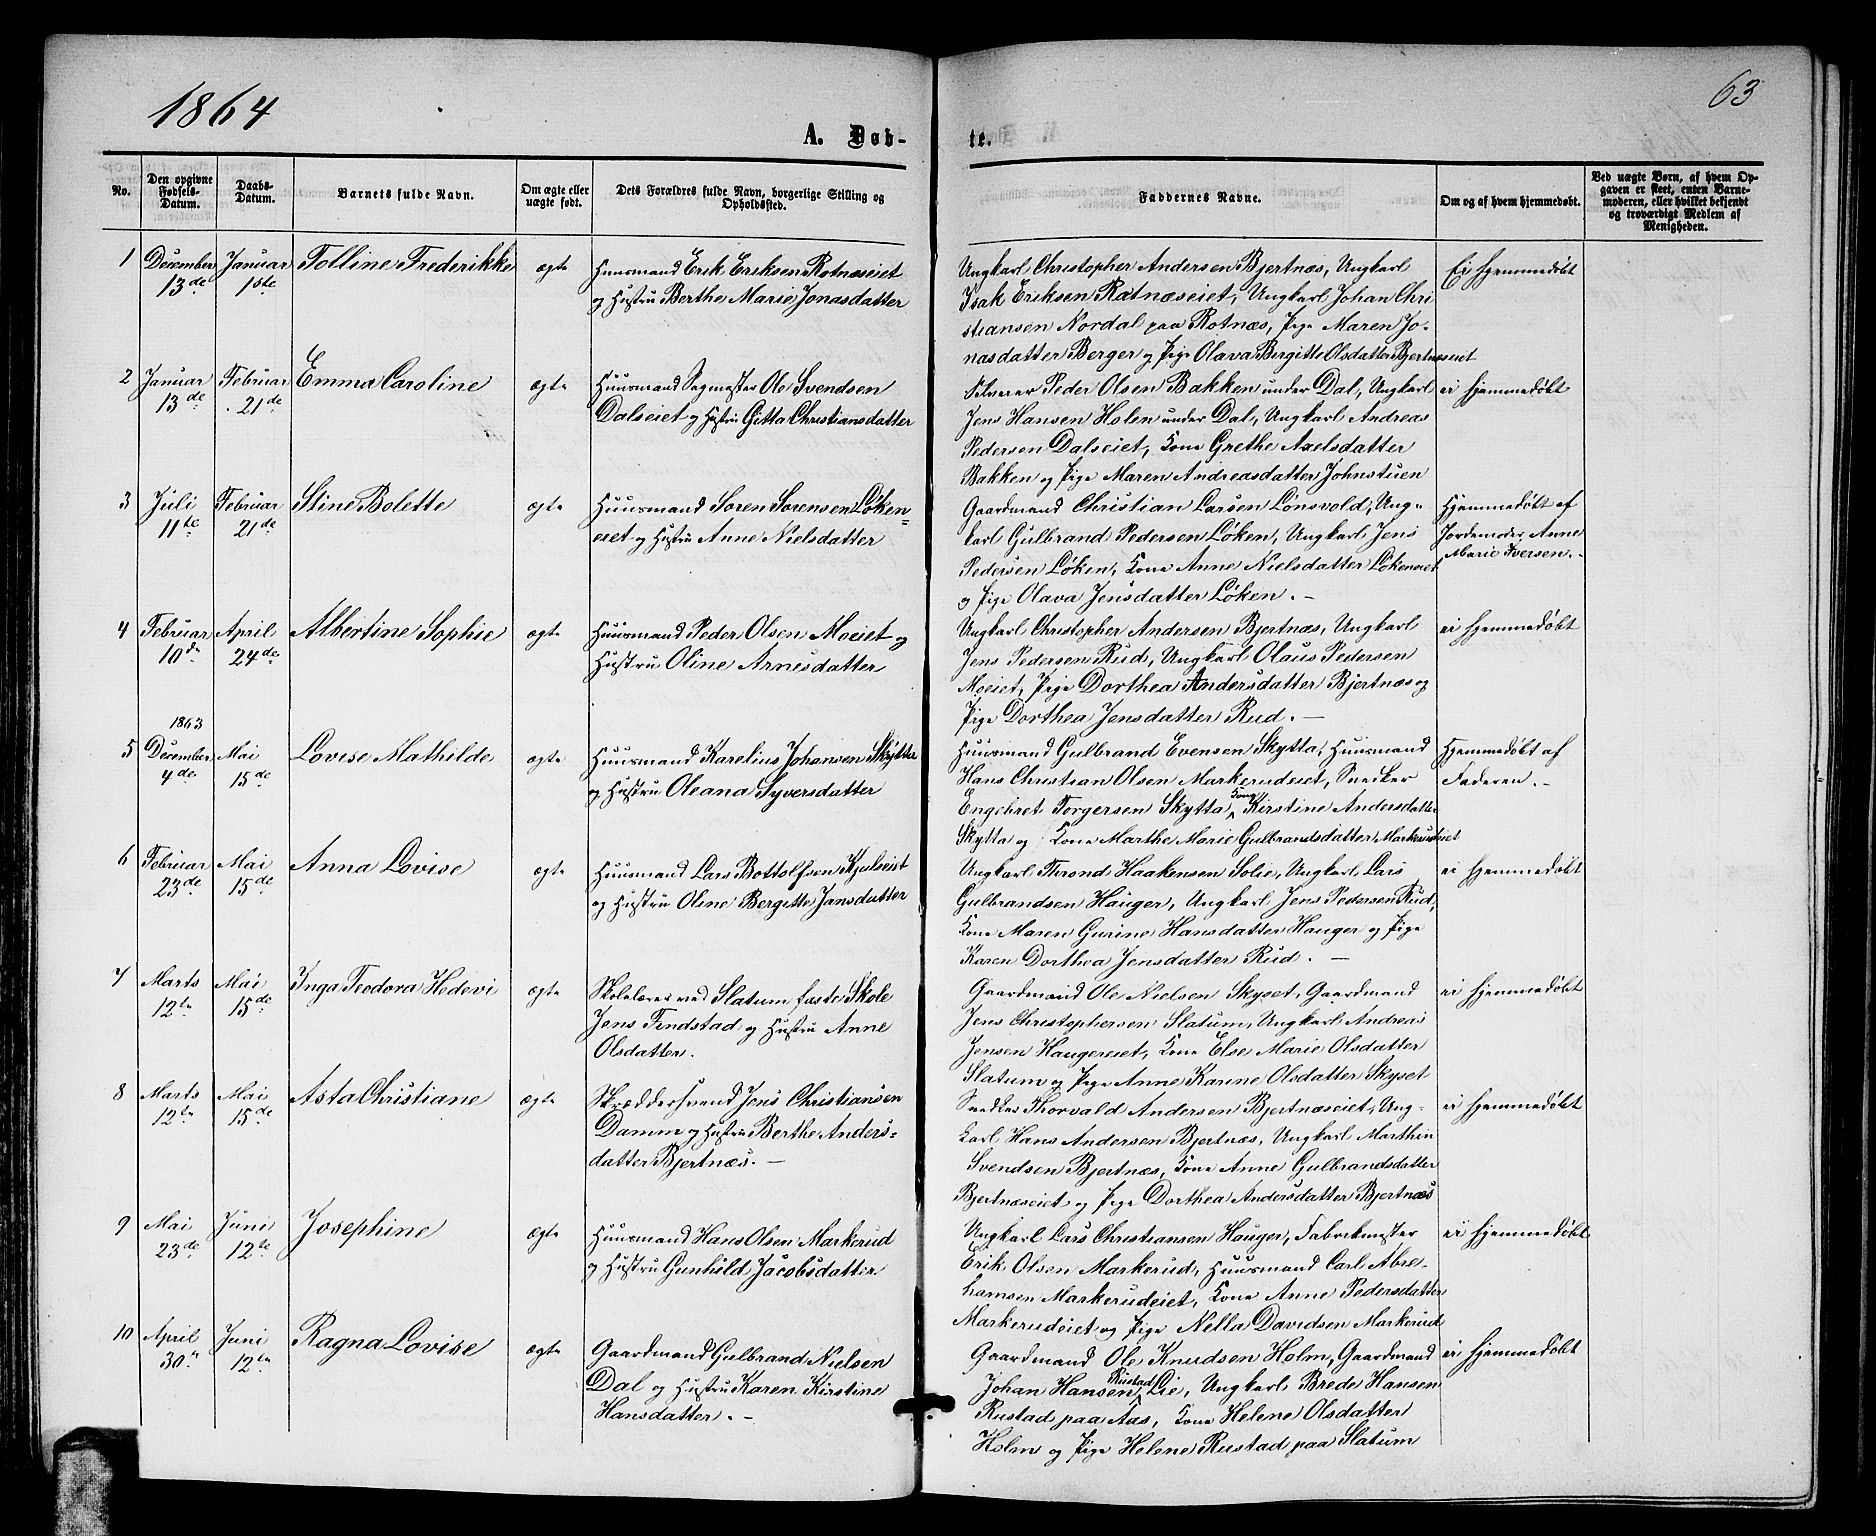 1864
63
A. Døb-
te.
No.
Den opgivne
Fødsels-
Datum.
Daabs-
Datum.
Barnets fulde Navn.
Om ægte eller
uægte født.
Dets Forældres fulde Navn, borgerlige Stilling og
Opholdssted.
Faddernes Navne.
Om og af hvem hjemmedøbt.
Ved uægte Børn, af hvem Op-
gaven er skeet, enten Barne-
moderen, eller hvilket bekjendt
og troværdigt Medlem af
Menigheden.
1
December
13de
Januar
1ste
Tolline Frederikke
ægte
Huusmand Erik Eriksen Rotnæseiet
og Hustru Berthe Marie Jonasdatter
Ungkarl Christopher Andersen Bjertnæs, Ungkarl
Isak Eriksen Rotnæseiet, Ungkarl Johan Chri
stiansen Nordal paa Rotnæs, Pige Maren Jo-
nasdatter Berger og Pige Olava Bergitte Olsdatter Bjertnæseiet
Ei hjemmedøbt
2
Januar
13de
Februar
21de
Emma Caroline
ægte
Huusmand Sagmester Ole Svendsen
Dalseiet og Hustru Gitta Christiansdatter
Selveier Peder Olsen Bakken under Dal, Ungkarl
Jens Hansen Holen under Dal, Ungkarl Andreas
Pedersen Dalseiet, Kone Grethe Axelsdatter
Bakken og Pige Maren Andreasdatter Johnstuen
ei hjemmedøbt
3
Juli
11te
Februar
21de
Stine Bolette
ægte
Huusmand Søren Sørensen Løken-
eiet og Hustru Anne Nielsdatter
Gaardmand Christian Larsen Lønsvold, Ung-
karl Gulbrand Pedersen Løken, Ungkarl Jens
Pedersen Løken, Kone Anne Nielsdatter Løkeneiet
og Pige Olava Jensdatter Løken. -
Hjemmedøbt af
Jordemoder Anne
Marie Iversen. -
4
Februar
10de
April
24de
Albertine Sophie
ægte
Huusmand Peder Olsen Moeiet og
Hustru Oline Arnesdatter
Ungkarl Christopher Andersen Bjertnæs, Ungkarl
Jens Pedersen Rud, Ungkarl Olaus Pedersen
Moeiet, Pige Dorthea Andersdatter Bjertnæs og
Pige Dorthea Jensdatter Rud. -
ei hjemmedøbt
5
1863
December
4de
Mai
15de
Lovise Mathilde
ægte
Huusmand Karelius Johansen Skytter
og Hustru Oleana Syversdatter
Huusmand Gulbrand Evensen Skytta, Huusmand
Hans Christian Olsen Markerudeiet, Snedker
Engebret Torgersen Skytta, Kone Kirstine Andersdatter
Skytta og Kone Marthe Marie Gulbrandsdatter Markerudeiet
Hjemmedøbt af
Faderen. -
6
Februar
23de
Mai
15de
Anna Lovise
ægte
Huusmand Lars Bottolfsen Kjulseiet
og Hustru Oline Bergitte Jansdatter
Ungkarl Thrond Haakensen Solie, Ungkarl Lars
Gulbrandsen Hauger, Ungkarl Jens Pedersen Rud,
Kone Maren Gurine Hansdatter Hauger og Pige
Karen Dorthea Jensdatter Rud. -
ei hjemmedøbt
7
Marts
12te
Mai
15de
Inga Teodora Hedevi
ægte
Skolelærer ved Slatum faste Skole
Jens Tindstad og Hustru Anne
Olsdatter.
Gaardmand Ole Nielsen Skyset, Gaardmand
Jens Christophersen Slatum, Ungkarl Andreas
Jensen Haugereiet, Kone Else Marie Olsdatter
Slatum og Pige Anne Karine Olsdatter Skyset
ei hjemmedøbt
8
Marts
12te
Mai
15de
Asta Christiane
ægte
Skræddersvend Jens Christiansen
Damm og Hustru Berthe Anders-
datter Bjertnæs. -
Snedker Thorvald Andersen Bjertnæseiet, Ung-
karl Hans Andersen Bjertnæs, Ungkarl Marthin
Svendsen Bjertnæs, Kone Anne Gulbrandsdatter
Bjertnæseiet og Pige Dorthea Andersdatter Bjertnæs
ei hjemmedøbt
9
Mai
23de
Juni
12te
Josephine
ægte
Huusmand Hans Olsen Markerud
og Hustru Gunhild Jacobsdatter
Ungkarl Lars Christiansen Hauger, Fabrikmester
Erik Olsen Markerud, Huusmand Carl Abra-
hamsen Markerudeiet, Kone Anne Pedersdatter
Markerudeiet og Pige Nella Davidsen Markerud
ei hjemmedøbt
10
April
30te
Juni
12te
Ragna Lovise
ægte
Gaardmand Gulbrand Nielsen
Dal og Hustru Karen Kirstine
Hansdatter. -
Gaardmand Ole Knudsen Holm, Gaardmand
Johan Hansen Rustad Lie, Ungkarl Brede Hansen
Rustad paa Aas, Kone Helene Olsdatter
Holm og Pige Helene Rustad paa Slatum
ei hjemmedøbt